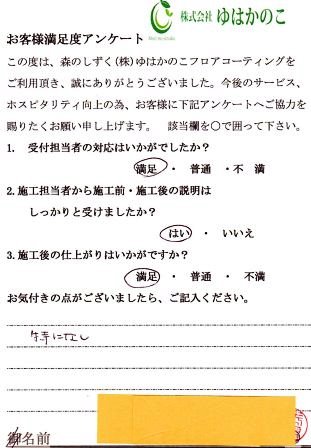 株式会社 ゆはかのこ
お客様満足度アンケート
この度は、森のしずく(株)ゆはかのこフロアコーティングを
ご利用頂き、誠にありがとうございました。今後のサービス、
ホスピタリティ向上の為、お客様に下記アンケートへご協力を
賜りたくお願い申し上げます。 該当欄を〇で囲って下さい。
1. 受付担当者の対応はいかがでしたか?
満足 ・ 普通 ・不 満
2.施工担当者から施工前・施工後の説明は
しっかりと受けましたか?
はい ・ いいえ
3.施工後の仕上がりはいかがですか?
満足 ・ 普通 ・ 不満
お気付きの点がございましたら、ご記入ください。
特になし
御名前